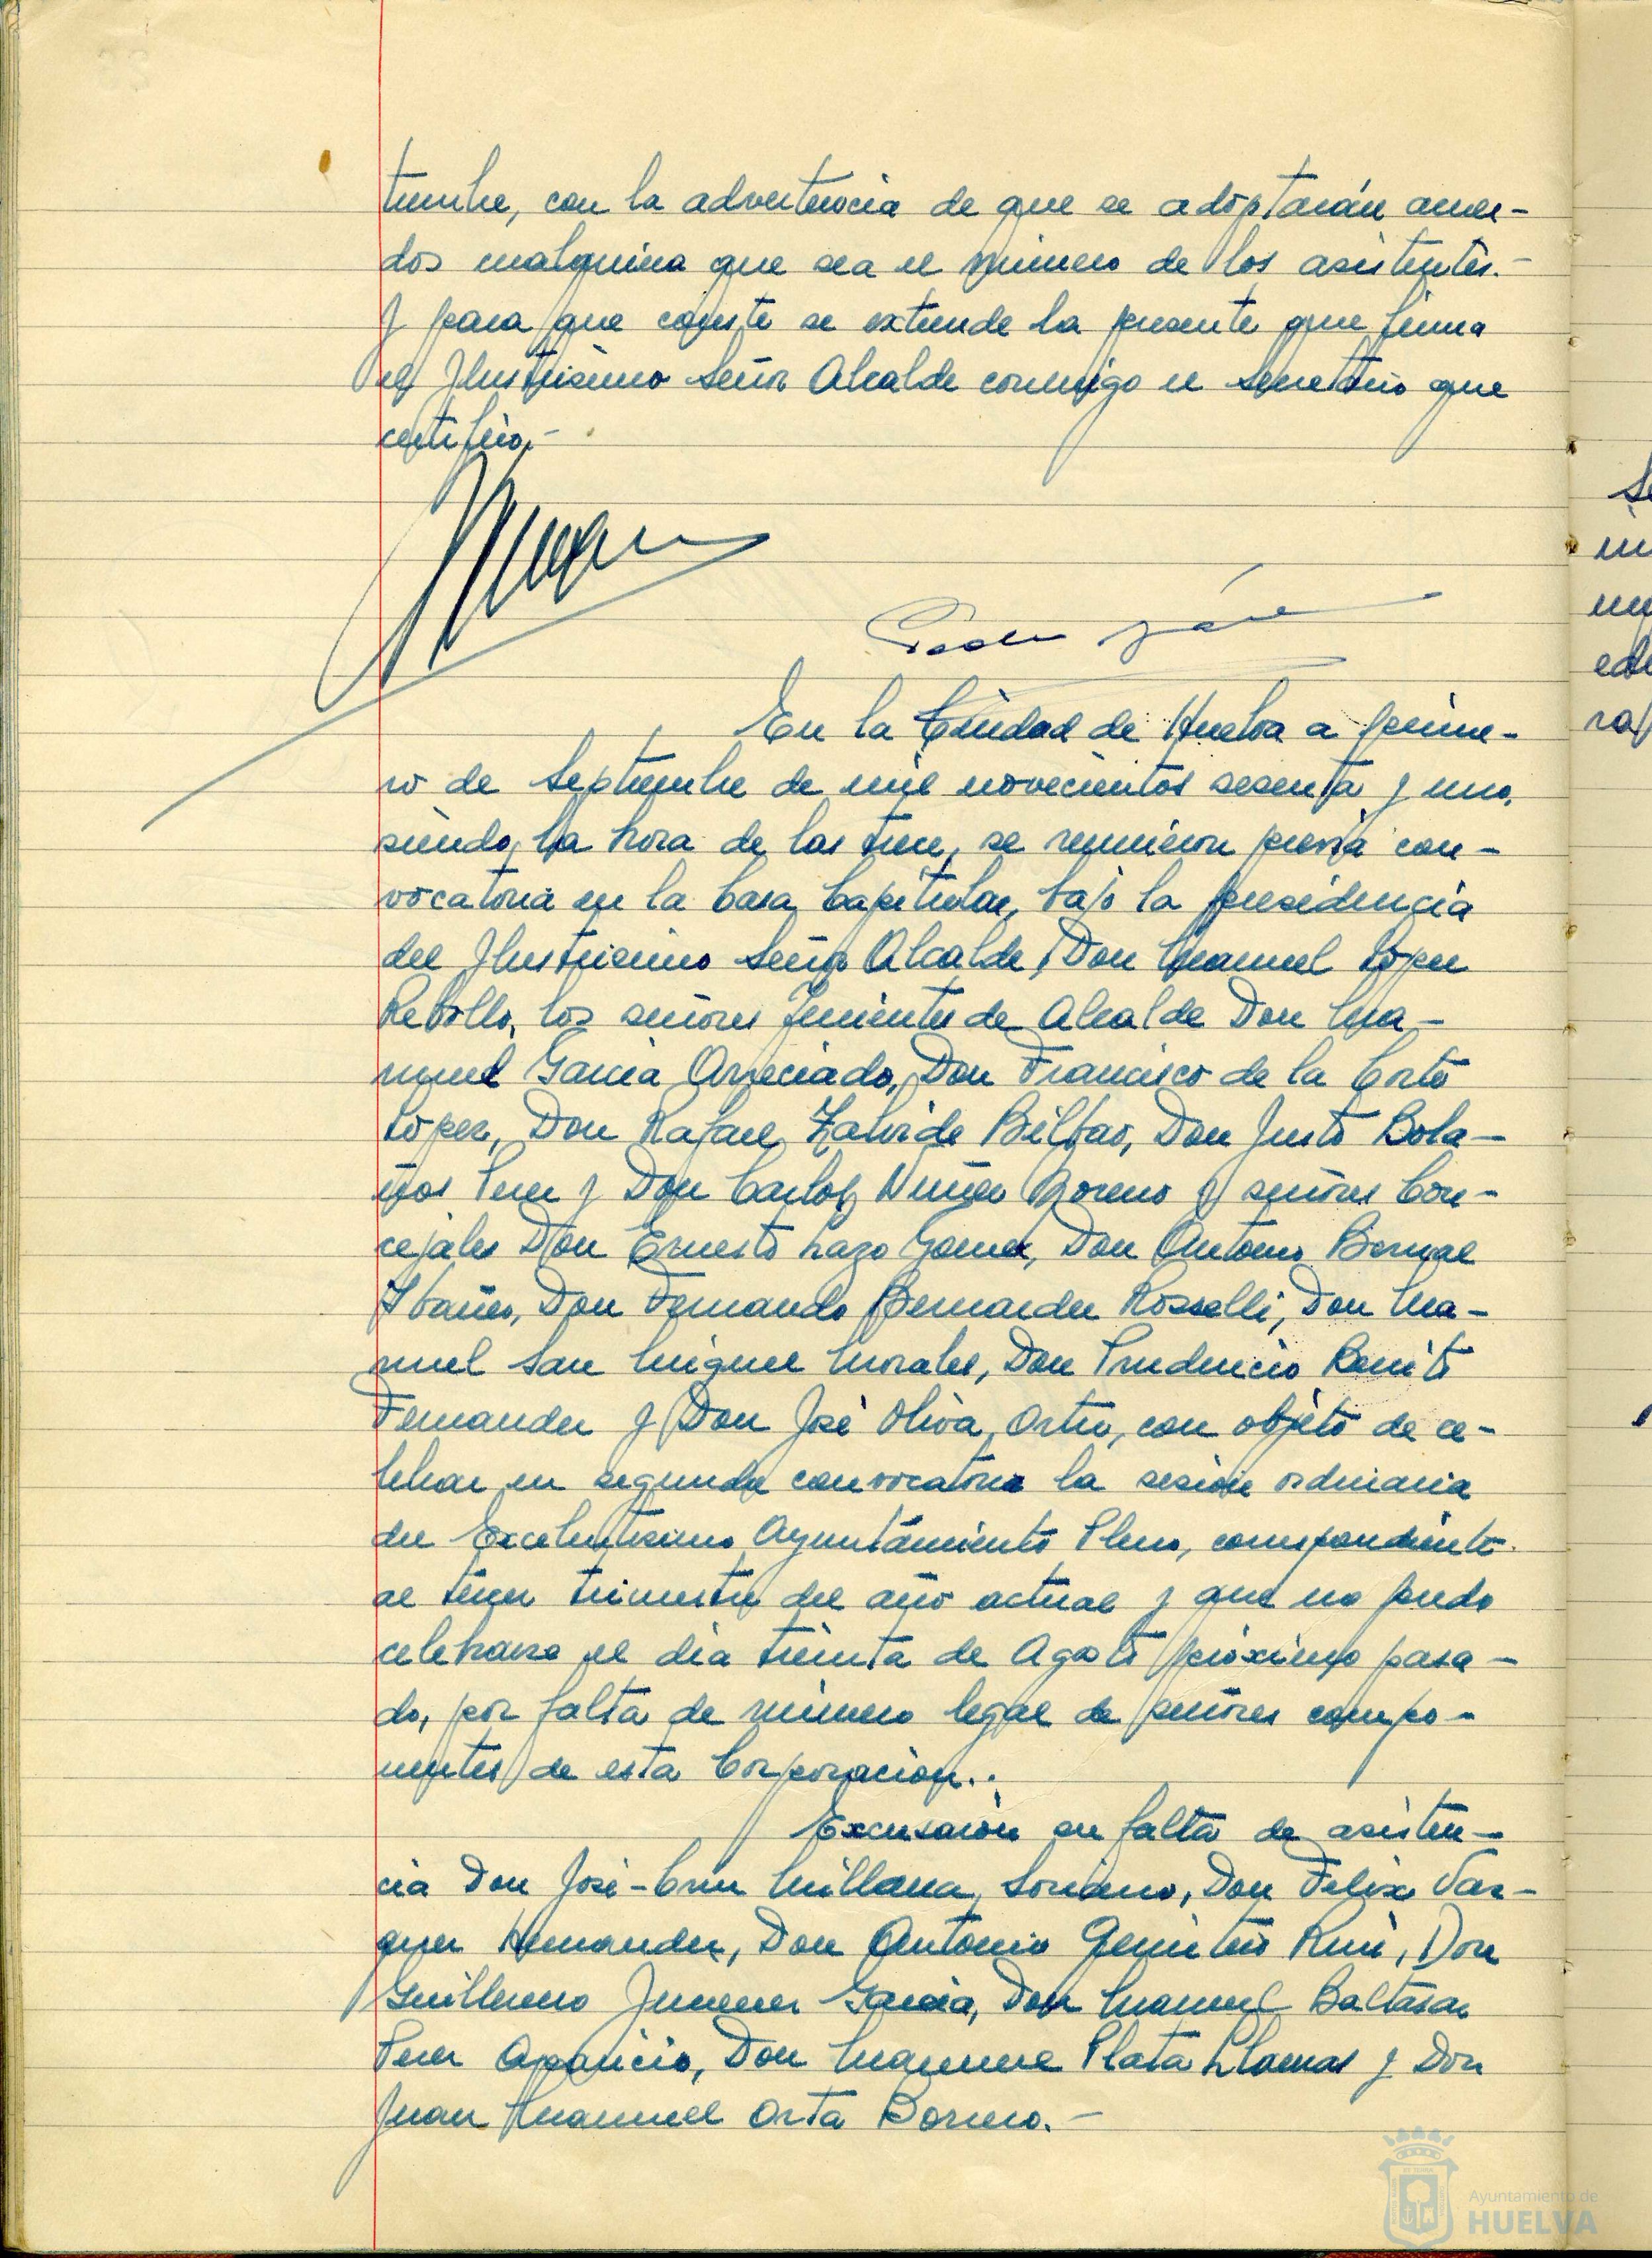 tiembre, con la advertencia de que se adoptarán acuer-
dos cualquiera que sea el número de los asistentes.-
Y para que conste se extiende la presente que firma
el Ilustrísimo Señor Alcalde conmigo el Secretario que
certifico.-
En la Ciudad de Huelva a prime-
ro de Septiembre de mil novecientos sesenta y uno,
siendo la hora de las trece, se reunieron previa con-
vocatoria en la Casa Capitular, bajo la presidencia
del Ilustrisimo Señor Alcalde, Don Manuel López
Rebollo, los señores Tenientes de Alcalde Don Ma-
nuel Garcia Arreciado, Don Francisco de la Corte
López, Don Rafael Zalvide Bilbao, Don Justo Bola-
ños Perez y Don Carlos Nuñez Moreno y señores Con-
cejales Don Ernesto Lazo Gomez, Don Antonio Bernal
Ibañez, Don Fernando Bermudez Rosselli, Don Ma-
nuel San Miguel Morales, Don Prudencio Benito
Fernandez y Don José Oliva Ortiz, con objeto de ce-
lebrar en segunda convocatoria la sesión ordinaria
del Excelentisimo Ayuntamiento Pleno, correspondiente
al tercer trimestre del año actual y que no pudo
celebrarse el dia treinta de Agosto próximo pasa-
do, por falta de número legal de señores compo-
nentes de esta Corporacion..
Excusaron su falta de asisten-
cia Don José-Cruz Millana Soriano, Don Felix Vaz-
quez Hernandez, Don Antonio Ruiz, Don
Guillermo Jimenez Garcia, Don Manuel Baltasar
Perez Aparicio, Don Manuel Plata Llamas y Don
Juan Manuel Orta Borrero.-
Ayuntamiento de
HUELVA